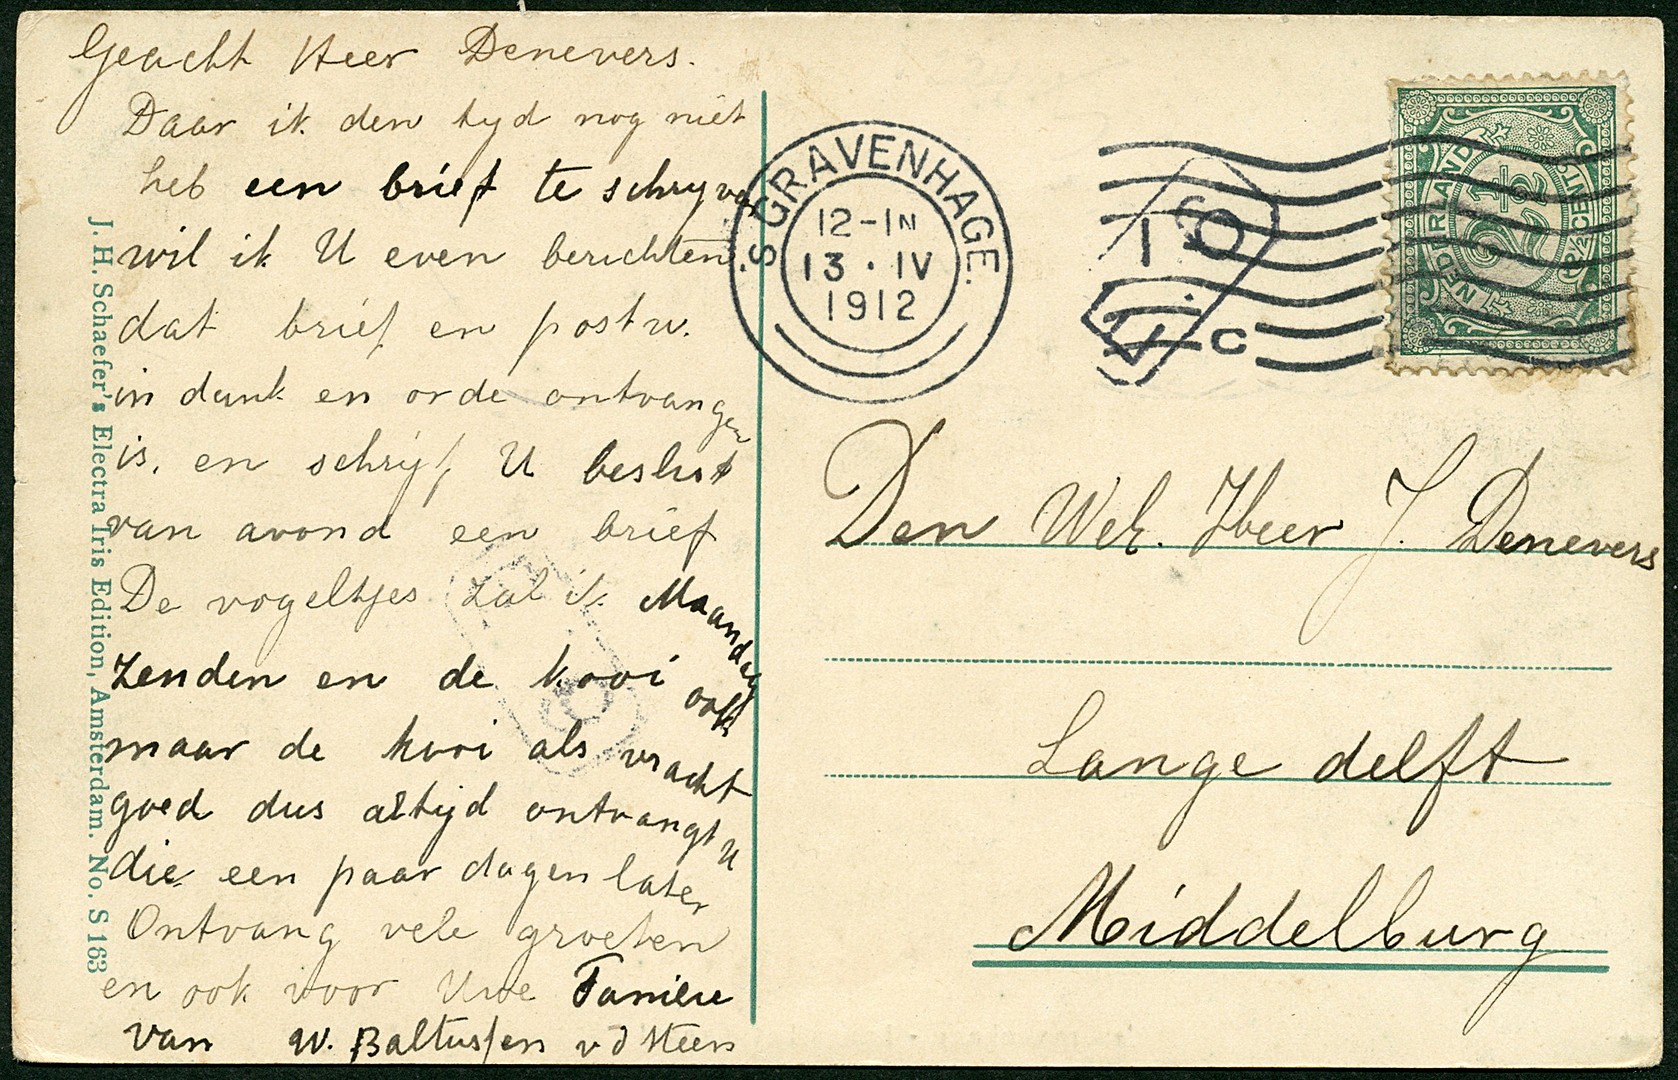 Geacht Heer Denevers.
Daar ik den tyd nog niet
heb een brief te schryven
wil ik U even berichten
dat brief en postw.
in dank en orde ontvangen
is, en schrijf U beslist
van avond een brief
De vogeltjes zal ik Maandag
zenden en de kooi ook
maar de kooi als vracht
goed dus altijd ontvangt U
die een paar dagen later
Ontvang vele groeten
en ook voor Uwe Familie
van W. Baltussen v d Steen
J. H. Schaefer's Electra Iris Edition, Amsterdam. No. S 163
'S GRAVENHAGE.
12-1N
13 · IV
1912
NEDERLAND
2½
2½ CENT
Den Wel. Heer J. Denevers
Lange delft
Middelburg